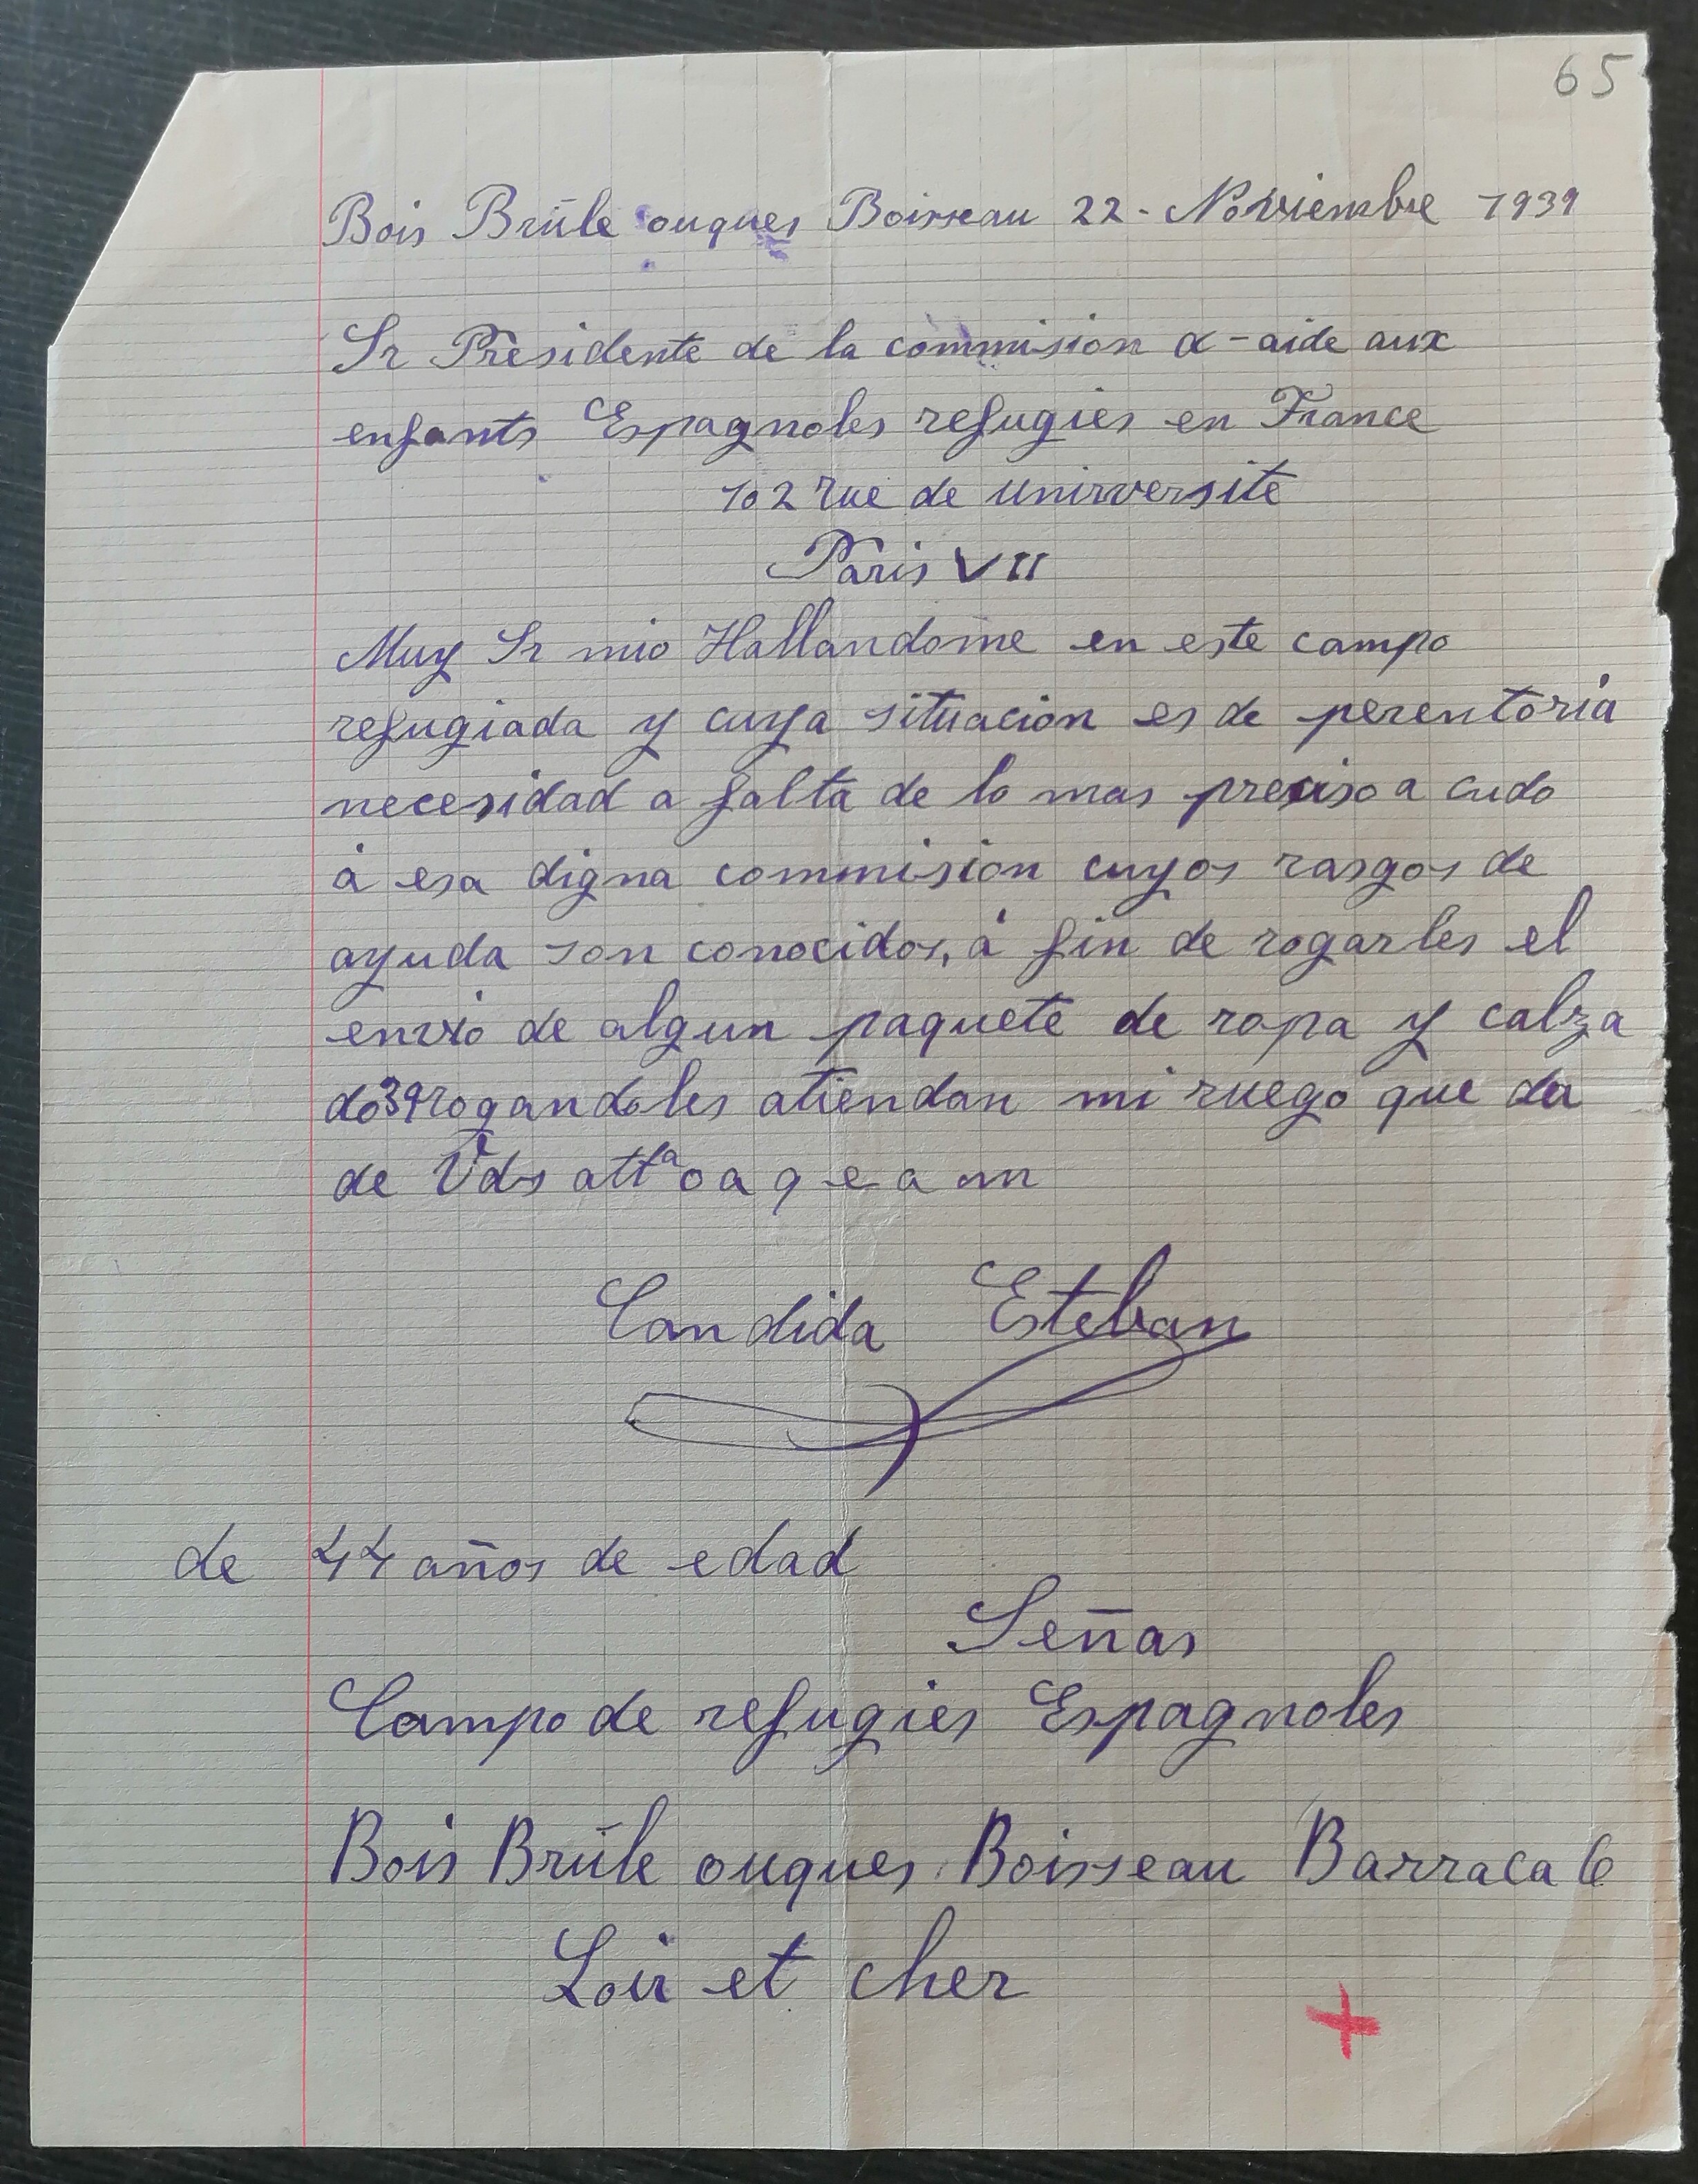 65
Bois Brûle ouques Boisseau 22 - Noviembre 1939
Sr Presidente de la commision α - aide aux
enfants Espagnoles refugies en France
102 rue de unirversite
Paris VII
Muy Sr mio Hallandome en este campo
refugiada y cuya situacion es de perentoria
necesidad a falta de lo mas preciso a cudo
á esa digna commision cuyos rasgos de
ayuda son conocidos, á fin de rogarles el
envio de algun paquete de ropa y calza
do 39 rogandoles atiendan mi ruego que da
de Vds attª o a q e a m
Candida Esteban
de 44 años de edad
Señas
Campo de refugies Espagnoles
Bois Brûle ouques Boisseau Barraca 6
Loir et cher